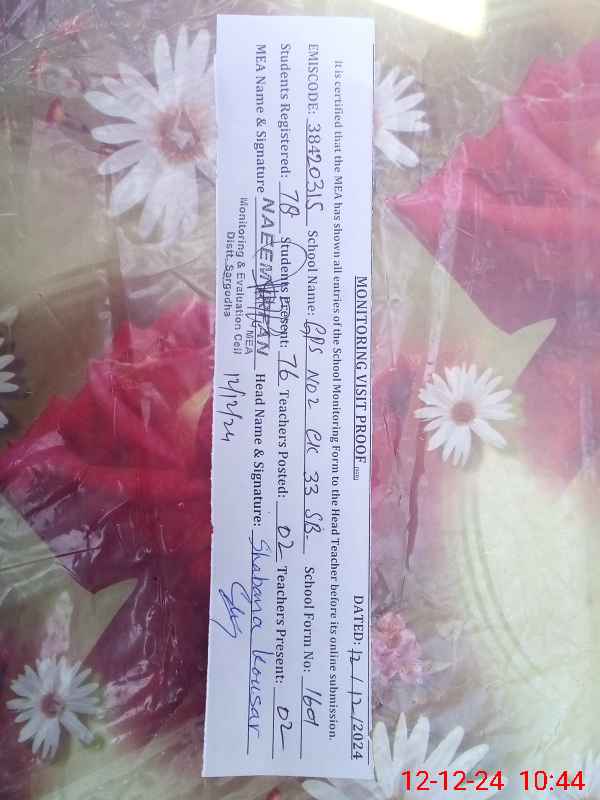 MONITORING VISIT PROOF DATED: 12/12/2024
It is certified that the MEA has shown all entries of the School Monitoring Form to the Head Teacher before its online submission.
EMISCODE: 38420315 School Name: GPS NO2 CK 33 SB- School Form No: 1601
Students Registered: 78 Students Present: 76 Teachers Posted: 02 Teachers Present: 02
MEA Name & Signature NAEEM IRFAN Head Name & Signature: Shabana Kousar
MEA
Monitoring & Evaluation Cell
Distt. Sargodha
12/12/24
12-12-24 10:44